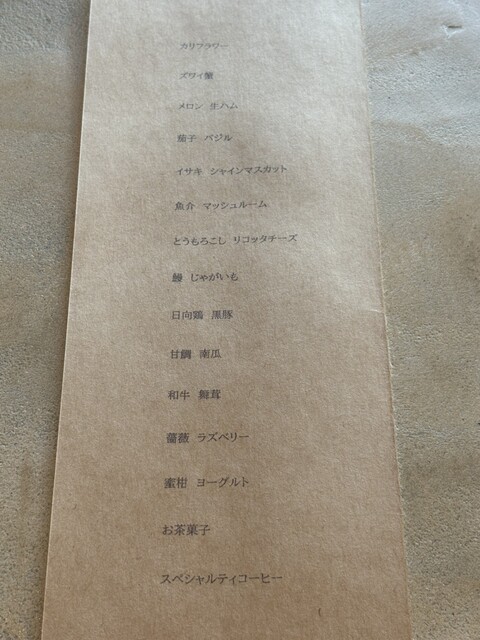 カリフラワー
ズワイ蟹
メロン 生ハム
茄子 バジル
イサキ シャインマスカット
魚介 マッシュルーム
とうもろこし リコッタチーズ
鰻 じゃがいも
日向鶏 黒豚
甘鯛 南瓜
和牛 舞茸
薔薇 ラズベリー
蜜柑 ヨーグルト
お茶菓子
スペシャルティコーヒー